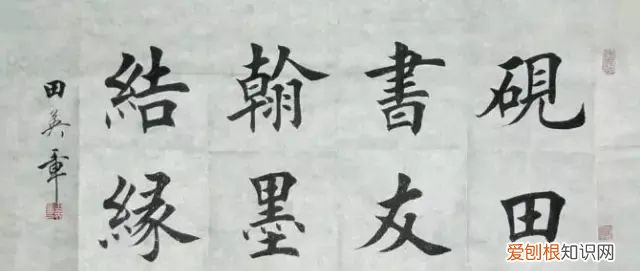 硯田
書友
翰墨
結緣
田英章
爱刨根知识网